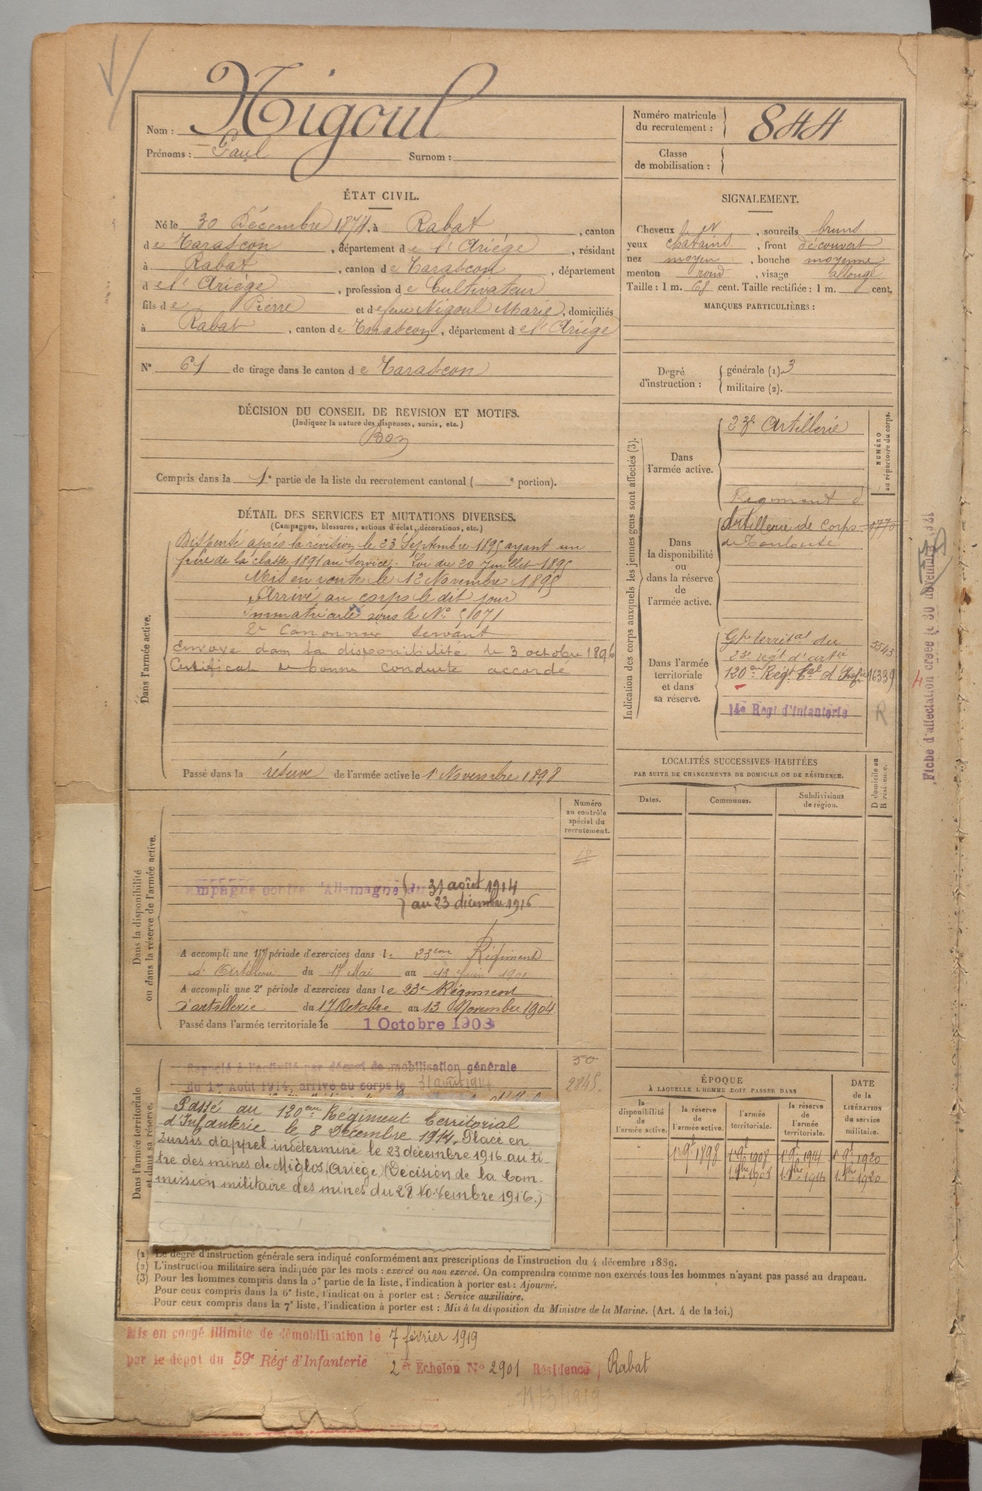 Nom : Nigoul
Prénoms : Paul Surnom :
Numéro matricule du recrutement : 844
Classe de mobilisation :
ÉTAT CIVIL.
Né le 30 Décembre 1874, à Rabat, canton
de Tarascon, département de l'Ariége, résidant
à Rabat, canton de Tarascon, département
de l'Ariége, profession de Cultivateur
fils de Pierre et de feue Nigoul Marie, domiciliés
à Rabat, canton de Tarascon, département de l'Ariége
N° 61 de tirage dans le canton de Tarascon
SIGNALEMENT.
Cheveux et, sourcils bruns
yeux chatains, front découvert
nez moyen, bouche moyenne
menton rond, visage allongé
Taille : 1 m. cent. Taille rectifiée : 1 m. cent.
MARQUES PARTICULIÈRES :
Degré d'instruction : générale (1). 3
militaire (2).
DÉCISION DU CONSEIL DE REVISION ET MOTIFS.
(Indiquer la nature des dispenses, sursis, etc.)
Bon
Compris dans la 1e partie de la liste du recrutement cantonal ( e portion).
DÉTAIL DES SERVICES ET MUTATIONS DIVERSES.
(Campagnes, blessures, actions d'éclat, décorations, etc.)
Dans l'armée active.
Dispensé après la revision, le 23 Septembre 1895 ayant un
frère de la classe 1891 au service. Loi du 20 Juillet 1895
Mis en route le 12 Novembre 1895
Arrivé au corps le dit jour
Immatriculé sous le N° 1071
2e Canonnier servant
Envoyé dans la disponibilité le 3 octobre 1896
Certificat de bonne conduite accordé
Passé dans la réserve de l'armée active le 1er Novembre 1898
Indication des corps auxquels les jeunes gens sont affectés (3).
NUMÉRO au répertoire du corps.
Dans l'armée active.
23e Artillerie
Dans la disponibilité ou dans la réserve de l'armée active.
Régiment d'
Artillerie de Corps 1770
de Toulouse
Dans l'armée territoriale et dans sa réserve.
Gpe territal du 3543
23e régt d'artie
120me Régt tal d'Infie 16339
14e Régt d'Infanterie R
Fiche d'affectation créée le 30 novembre
LOCALITÉS SUCCESSIVES HABITÉES
PAR SUITE DE CHANGEMENTS DE DOMICILE OU DE RÉSIDENCE.
Dates. Communes. Subdivisions de région. D domicile ou R résidence.
Numéro au contrôle spécial du recrutement.
Dans la disponibilité ou dans la réserve de l'armée active.
Campagne contre l'Allemagne du 31 août 1914
au 23 décembre 1916
A accompli une 1re période d'exercices dans le 23eme Régiment
d'Artillerie du 17 Mai au 13 Juin 1901
A accompli une 2e période d'exercices dans le 23e Régiment
d'artillerie du 17 Octobre au 13 Novembre 1904
Passé dans l'armée territoriale le 1 Octobre 1908
Dans l'armée territoriale et dans sa réserve.
Rappelé à l'activité par décret de mobilisation générale
du 1er Août 1914, arrivé au corps le 31 août 1914
50
2845.
Passé au 120eme Régiment territorial
d'Infanterie le 8 Décembre 1914. Placé en
sursis d'appel indéterminé le 23 décembre 1916 au ti-
tre des mines de Miglos, Ariège, (Décision de la Com-
mission militaire des mines du 28 Novembre 1916.)
ÉPOQUE
À LAQUELLE L'HOMME DOIT PASSER DANS
la disponibilité de l'armée active. la réserve de l'armée active. l'armée territoriale. la réserve de l'armée territoriale.
DATE DE LA LIBÉRATION DU service militaire.
1er 9bre 1898 1er 9bre 1908 1er 9bre 1914 1er 9bre 1920
(1) Le degré d'instruction générale sera indiqué conformément aux prescriptions de l'instruction du 4 décembre 1889.
(2) L'instruction militaire sera indiquée par les mots : exercé ou non exercé. On comprendra comme non exercés tous les hommes n'ayant pas passé au drapeau.
(3) Pour les hommes compris dans la 5e partie de la liste, l'indication à porter est : Ajourné.
Pour ceux compris dans la 6e liste, l'indication à porter est : Service auxiliaire.
Pour ceux compris dans la 7e liste, l'indication à porter est : Mis à la disposition du Ministre de la Marine. (Art. 4 de la loi.)
Mis en congé illimité de démobilisation le 7 février 1919
par le dépôt du 59e Régt d'Infanterie 2e Echelon N° 2901 Résidence, Rabat
11/3/1919